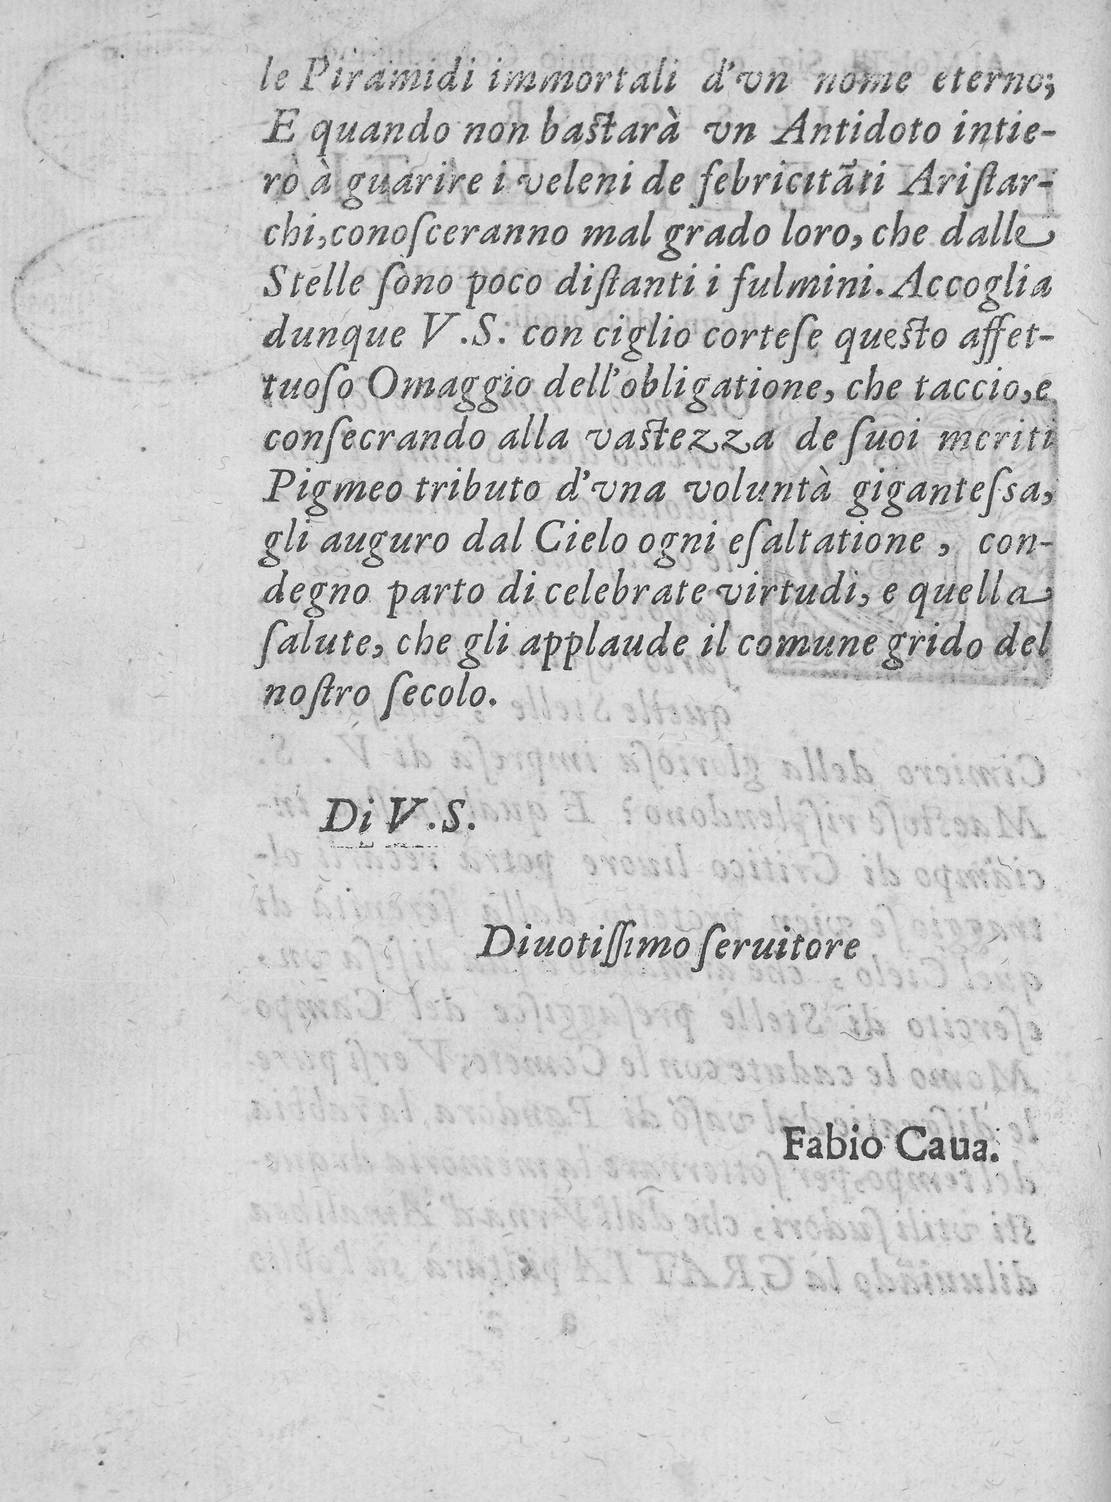 le Piramidi immortali d'vn nome eterno;
E quando non baſtarà vn Antidoto intie-
ro à guarire i veleni de febricitāti Ariſtar-
chi, conoſceranno mal grado loro, che dalle
Stelle ſono poco diſtanti i fulmini. Accoglia
dunque V.S. con ciglio corteſe queſto affet-
tuoſo Omaggio dell'obligatione, che taccio, e
conſecrando alla vaſtezza de ſuoi meriti
Pigmeo tributo d'vna voluntà giganteſsa,
gli auguro dal Cielo ogni eſaltatione, con-
degno parto di celebrate virtudi, e quella
ſalute, che gli applaude il comune grido del
noſtro ſecolo.
Di V.S.
Diuotiſſimo ſeruitore
Fabio Caua.